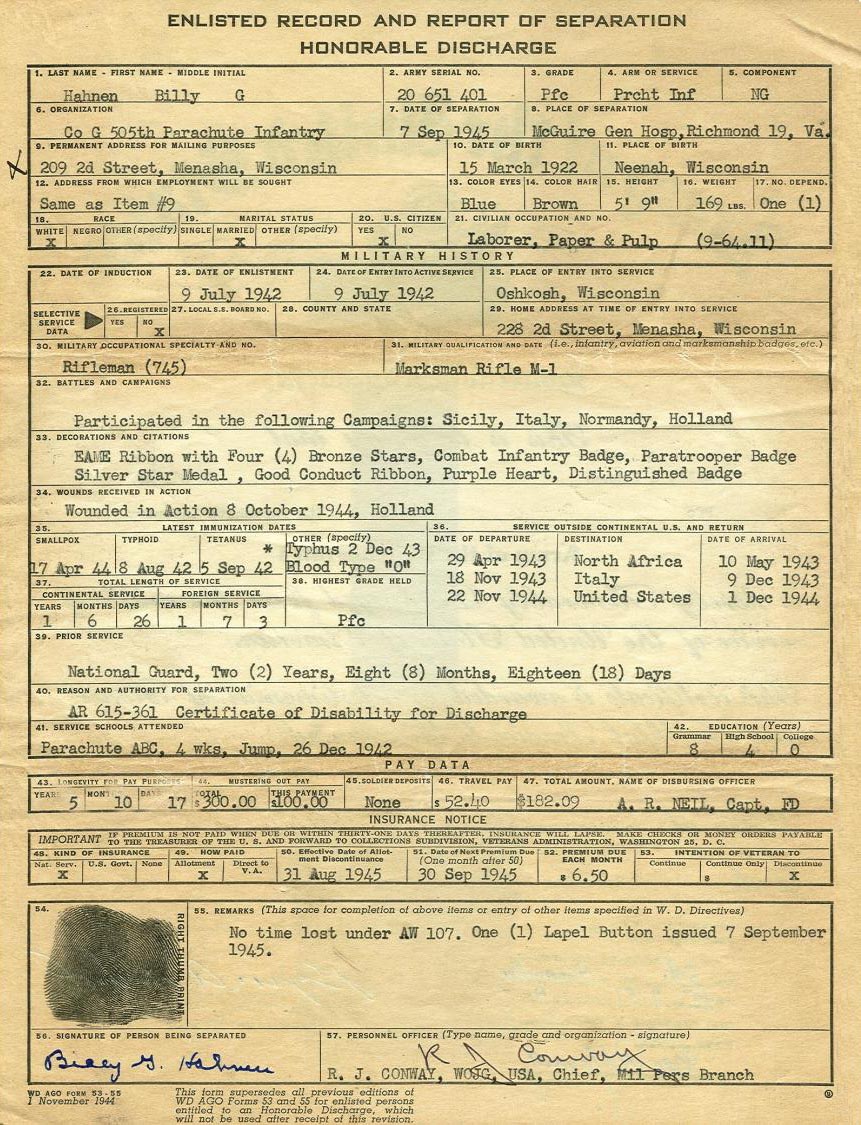 ENLISTED RECORD AND REPORT OF SEPARATION
HONORABLE DISCHARGE
1. LAST NAME - FIRST NAME - MIDDLE INITIAL 2. ARMY SERIAL NO. 3. GRADE 4. ARM OR SERVICE 5. COMPONENT
Hahnen Billy G 20 651 401 Pfc Prcht Inf NG
6. ORGANIZATION 7. DATE OF SEPARATION 8. PLACE OF SEPARATION
Co G 505th Parachute Infantry 7 Sep 1945 McGuire Gen Hosp,Richmond 19, Va.
9. PERMANENT ADDRESS FOR MAILING PURPOSES 10. DATE OF BIRTH 11. PLACE OF BIRTH
X 209 2d Street, Menasha, Wisconsin 15 March 1922 Neenah, Wisconsin
12. ADDRESS FROM WHICH EMPLOYMENT WILL BE SOUGHT 13. COLOR EYES 14. COLOR HAIR 15. HEIGHT 16. WEIGHT 17. NO. DEPEND.
Same as Item #9 Blue Brown 5' 9" 169 LBS. One (1)
18. RACE 19. MARITAL STATUS 20. U.S. CITIZEN 21. CIVILIAN OCCUPATION AND NO.
WHITE NEGRO OTHER (specify) SINGLE MARRIED OTHER (specify) YES NO
X X X Laborer, Paper & Pulp (9-64.11)
MILITARY HISTORY
22. DATE OF INDUCTION 23. DATE OF ENLISTMENT 24. DATE OF ENTRY INTO ACTIVE SERVICE 25. PLACE OF ENTRY INTO SERVICE
9 July 1942 9 July 1942 Oshkosh, Wisconsin
SELECTIVE SERVICE DATA 26. REGISTERED 27. LOCAL S.S. BOARD NO. 28. COUNTY AND STATE 29. HOME ADDRESS AT TIME OF ENTRY INTO SERVICE
YES NO
X 228 2d Street, Menasha, Wisconsin
30. MILITARY OCCUPATIONAL SPECIALTY AND NO. 31. MILITARY QUALIFICATION AND DATE (i.e., infantry, aviation and marksmanship badges, etc.)
Rifleman (745) Marksman Rifle M-1
32. BATTLES AND CAMPAIGNS
Participated in the following Campaigns: Sicily, Italy, Normandy, Holland
33. DECORATIONS AND CITATIONS
EAME Ribbon with Four (4) Bronze Stars, Combat Infantry Badge, Paratrooper Badge
Silver Star Medal , Good Conduct Ribbon, Purple Heart, Distinguished Badge
34. WOUNDS RECEIVED IN ACTION
Wounded in Action 8 October 1944, Holland
35. LATEST IMMUNIZATION DATES 36. SERVICE OUTSIDE CONTINENTAL U.S. AND RETURN
SMALLPOX TYPHOID TETANUS OTHER (specify) DATE OF DEPARTURE DESTINATION DATE OF ARRIVAL
* Typhus 2 Dec 43
17 Apr 44 8 Aug 42 5 Sep 42 Blood Type "O" 29 Apr 1943 North Africa 10 May 1943
37. TOTAL LENGTH OF SERVICE 38. HIGHEST GRADE HELD 18 Nov 1943 Italy 9 Dec 1943
CONTINENTAL SERVICE FOREIGN SERVICE 22 Nov 1944 United States 1 Dec 1944
YEARS MONTHS DAYS YEARS MONTHS DAYS
1 6 26 1 7 3 Pfc
39. PRIOR SERVICE
National Guard, Two (2) Years, Eight (8) Months, Eighteen (18) Days
40. REASON AND AUTHORITY FOR SEPARATION
AR 615-361 Certificate of Disability for Discharge
41. SERVICE SCHOOLS ATTENDED 42. EDUCATION (Years)
Grammar High School College
Parachute ABC, 4 wks, Jump, 26 Dec 1942 8 4 0
PAY DATA
43. LONGEVITY FOR PAY PURPOSES 44. MUSTERING OUT PAY 45. SOLDIER DEPOSITS 46. TRAVEL PAY 47. TOTAL AMOUNT, NAME OF DISBURSING OFFICER
YEARS MONTHS DAYS TOTAL THIS PAYMENT
5 10 17 $300.00 $100.00 None $ 52.40 $182.09 A. R. NEIL, Capt, FD
INSURANCE NOTICE
IMPORTANT IF PREMIUM IS NOT PAID WHEN DUE OR WITHIN THIRTY-ONE DAYS THEREAFTER, INSURANCE WILL LAPSE. MAKE CHECKS OR MONEY ORDERS PAYABLE
TO THE TREASURER OF THE U. S. AND FORWARD TO COLLECTIONS SUBDIVISION, VETERANS ADMINISTRATION, WASHINGTON 25, D. C.
48. KIND OF INSURANCE 49. HOW PAID 50. Effective Date of Allotment Discontinuance 51. Date of Next Premium Due (One month after 50) 52. PREMIUM DUE EACH MONTH 53. INTENTION OF VETERAN TO
Nat. Serv. U.S. Govt. None Allotment Direct to V.A. Continue Continue Only Discontinue
X X 31 Aug 1945 30 Sep 1945 $ 6.50 $ X
54. 55. REMARKS (This space for completion of above items or entry of other items specified in W. D. Directives)
RIGHT THUMB PRINT
No time lost under AW 107. One (1) Lapel Button issued 7 September
1945.
56. SIGNATURE OF PERSON BEING SEPARATED 57. PERSONNEL OFFICER (Type name, grade and organization - signature)
Billy G. Hahnen R J Conway
R. J. CONWAY, WOJG, USA, Chief, Mil Pers Branch
WD AGO FORM 53-55
1 November 1944
This form supersedes all previous editions of
WD AGO Forms 53 and 55 for enlisted persons
entitled to an Honorable Discharge, which
will not be used after receipt of this revision.